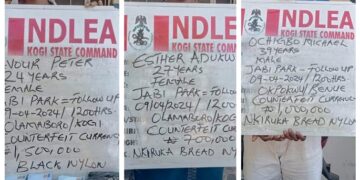 NDLEA
KOGI STATE COMMAND
PETER
24 YEARS
JABI PARK = FOLLOW UP
09-04-2024/1200HRS
OLAMABORO/KOGI
COUNTERFEIT CURRENC
=1,500,000
BLACK NYLON
NDLEA
KOGI STATE COMMAND
ESTHER ADUKW
27 YEARS
FEMALE
JABI PARK = FOLLOW UP
09/04/2024/1200
OLAMABORO/KOGI
COUNTERFEIT CURRENC
= 700,000
NKIRUKA BREAD NYLO
NDLEA
KOGI STATE COMMAND
OCHIGBO MICHAEL
39 YEARS
MALE
JABI PARK = FOLLOW UP
09-04-2024/1200HRS
OKPOKWU/BENUE
COUNTERFEIT CURRENC
NKIRUKA BREAD NYLON